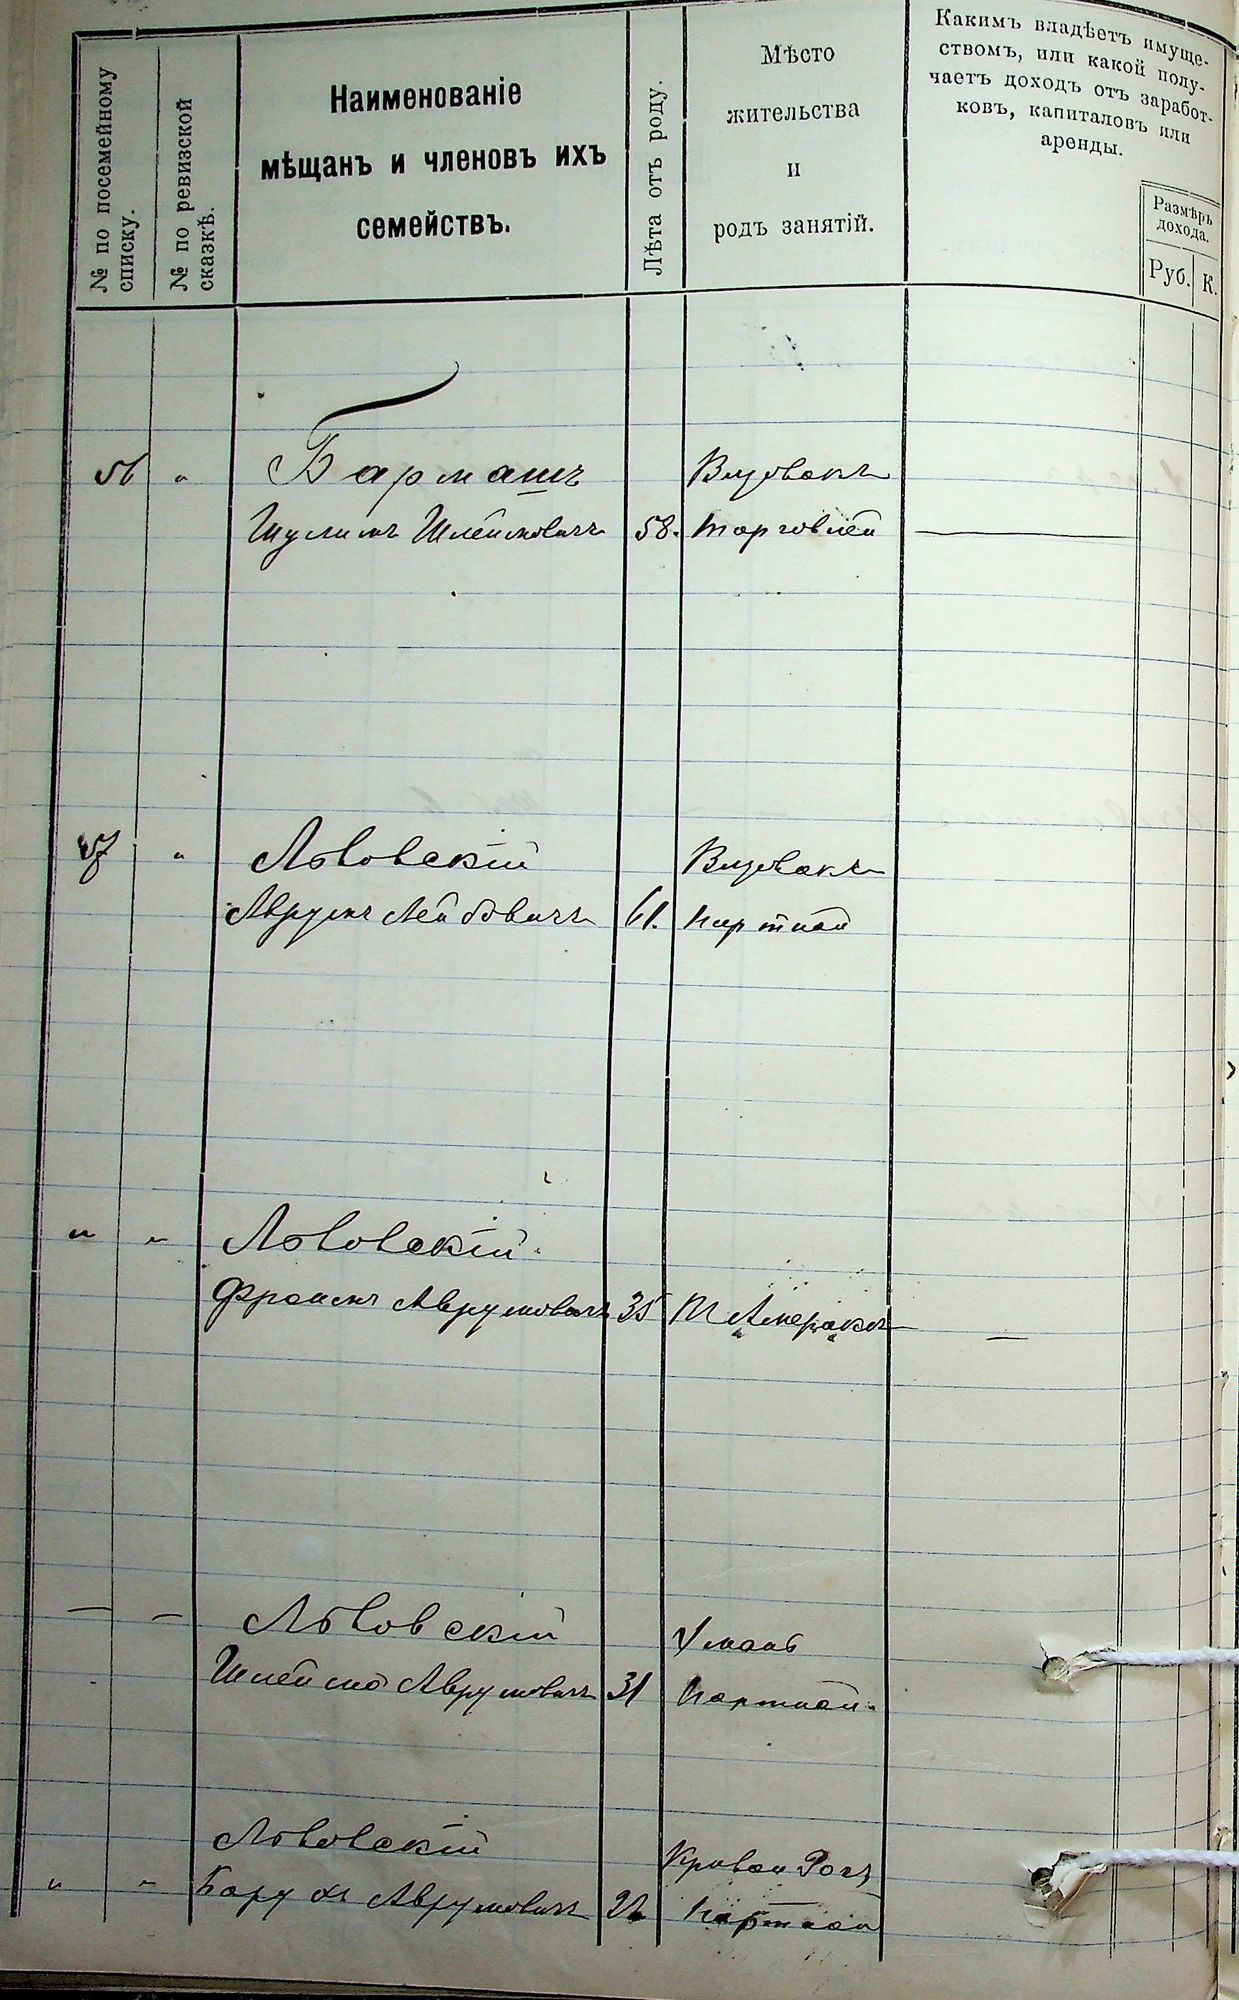 № по посемейному
списку.
№ по ревизской
сказкѣ.
Наименованіе
мѣщанъ и членовъ ихъ
семействъ.
Лѣта отъ роду.
Мѣсто
жительства
и
родъ занятій.
Какимъ владѣетъ имуще-
ствомъ, или какой полу-
чаетъ доходъ отъ заработ-
ковъ, капиталовъ или
аренды.
Размѣръ
дохода.
Руб. К.
56 " Бармашъ
Шулимъ Шлемовичъ 58. торговлей
57 " Львовскій
Аврумъ Лейбовичъ 61. портной
" " Львовскій
Фроимъ Аврумовичъ 35
— — Львовскій Умань
Шлёмо Аврумовичъ 31 портной.
Львовскій Кривой Рогъ
" " Барухъ Аврумовичъ портной